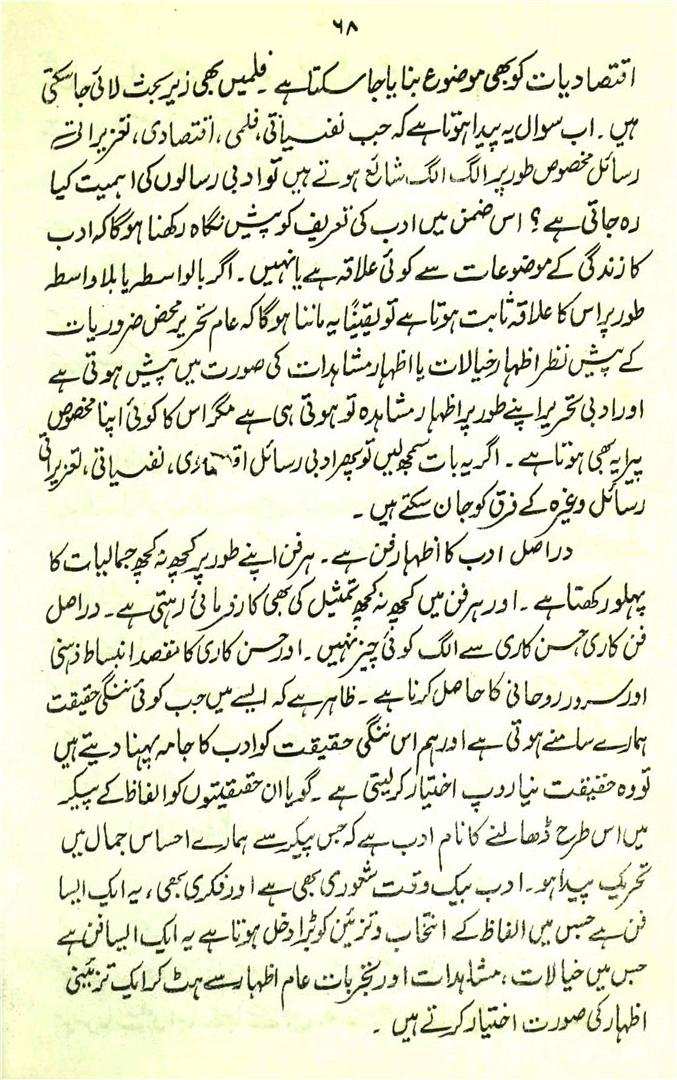 ۶۸
اقتصادیات کو بھی موضوع بنایا جا سکتا ہے ۔ فلمیں بھی زیر بحث لائی جا سکتی
ہیں ۔ اب سوال یہ پیدا ہوتا ہے کہ جب نفسیاتی ، فلمی ، اقتصادی ، تعزیراتی
رسائل مخصوص طور پر الگ الگ شائع ہوتے ہیں تو ادبی رسالوں کی اہمیت کیا
رہ جاتی ہے ؟ اس ضمن میں ادب کی تعریف کو پیش نگاہ رکھنا ہوگا کہ ادب
کا زندگی کے موضوعات سے کوئی علاقہ ہے یا نہیں ۔ اگر بالواسطہ یا بلاواسطہ
طور پر اس کا علاقہ ثابت ہوتا ہے تو یقینًا یہ ماننا ہوگا کہ عام تحریر محض ضروریات
کے پیش نظر اظہار خیالات یا اظہار مشاہدات کی صورت میں پیش ہوتی ہے
اور ادبی تحریر اپنے طور پر اظہار مشاہدہ تو ہوتی ہی ہے مگر اس کا کوئی اپنا مخصوص
پیرایہ بھی ہوتا ہے ۔ اگر یہ بات سمجھ لیں تو پھر ادبی رسائل اقتصادی ، نفسیاتی ، تعزیراتی
رسائل وغیرہ کے فرق کو جان سکتے ہیں ۔
در اصل ادب کا اظہار فن ہے ۔ ہر فن اپنے طور پر کچھ نہ کچھ جمالیات کا
پہلو رکھتا ہے ۔ اور ہر فن میں کچھ نہ کچھ تمثیل کی بھی کارفرمائی رہتی ہے ۔ دراصل
فن کاری ، حسن کاری سے الگ کوئی چیز نہیں ۔ اور حسن کاری کا مقصد انبساط ذہنی
اور سرور روحانی کا حاصل کرنا ہے ۔ ظاہر ہے کہ ایسے میں جب کوئی ننگی حقیقت
ہمارے سامنے ہوتی ہے اور ہم اس ننگی حقیقت کو ادب کا جامہ پہنا دیتے ہیں
تو وہ حقیقت نیا روپ اختیار کر لیتی ہے ۔ گویا ان حقیقتوں کو الفاظ کے پیکر
میں اس طرح ڈھالنے کا نام ادب ہے کہ جس پیکر سے ہمارے احساس جمال میں
تحریک پیدا ہو ۔ ادب بیک وقت شعوری بھی ہے اور فکری بھی ، یہ ایک ایسا
فن ہے جس میں الفاظ کے انتخاب و تزئین کو بڑا دخل ہوتا ہے یہ ایک ایسا فن ہے
جس میں خیالات ، مشاہدات اور تجربات عام اظہار سے ہٹ کر ایک تزئینی
اظہار کی صورت اختیار کرتے ہیں ۔